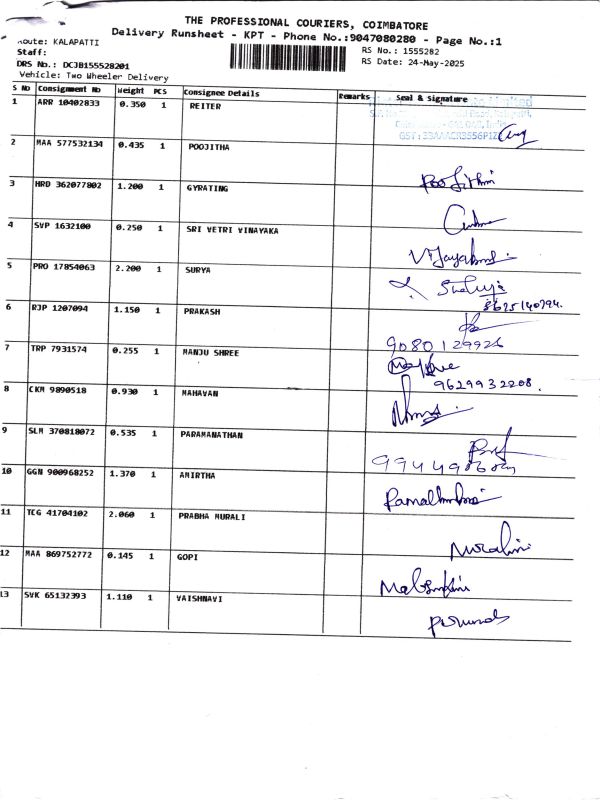 THE PROFESSIONAL COURIERS, COIMBATORE
Delivery Runsheet - KPT - Phone No.:9047080280 - Page No.:1
Route: KALAPATTI
RS No.: 1555282
Staff:
RS Date: 24-May-2025
DRS No.: DCJB155528201
Vehicle: Two Wheeler Delivery
S No Consignment No Weight PCS Consignee Details Remarks Seal & Signature
1 ARR 10402833 0.350 1 REITER
2 MAA 577532134 0.435 1 POOJITHA
3 HRD 362077802 1.200 1 GYRATING
4 SVP 1632100 0.250 1 SRI VETRI VINAYAKA
5 PRO 17854063 2.200 1 SURYA
8625140794.
6 RJP 1207094 1.150 1 PRAKASH
9080129926
7 TRP 7931574 0.255 1 MANJU SHREE
9629932208.
8 CKM 9890518 0.930 1 MAHAVAN
9 SLM 370818072 0.535 1 PARAMANATHAN
10 GGN 900968252 1.370 1 AMIRTHA
11 TCG 41704102 2.060 1 PRABHA MURALI
12 MAA 869752772 0.145 1 GOPI
13 SVK 65132393 1.110 1 VAISHNAVI